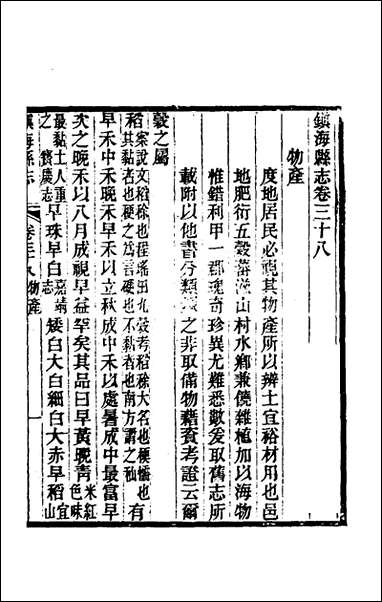 鎮海縣志卷三十八
物產
度地居民必視其物產所以辨土宜裕材用也邑
地肥衍五穀蕃滋山村水鄉兼饒雜植加以海物
惟錯利甲一郡瑰奇珍異尤難悉數爰取舊志所
載附以他書分類表之非取備物藉資考證云爾
穀之屬
稻案說文稻稌也程瑤田九穀考稻稌大名也稉穤也
其黏者也稉之為言硬也不黏者也南方謂之秈
有
早禾中禾晚禾早禾以立秋成中禾以處暑成中最富早
次之晚禾以八月成視早益罕矣其品曰早黃晚靑米紅
色味
最黏土人重
之寶慶志
早珠早白嘉靖
志
矮白大白細白大赤早稻宜
山
鎮海縣志
卷三十八物產
一